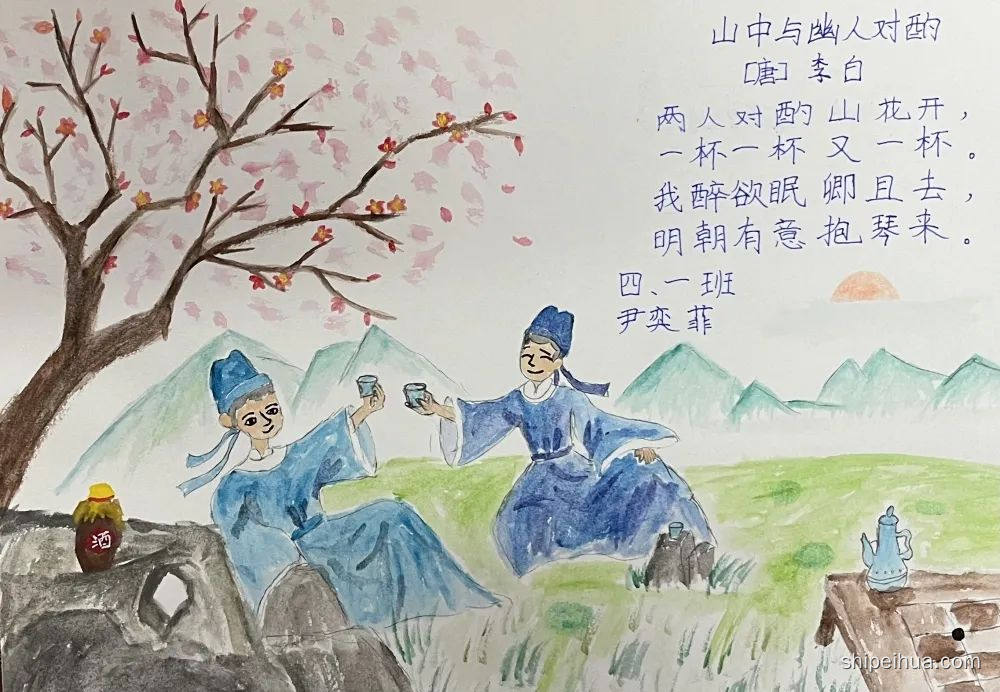 山中与幽人对酌
[唐] 李白
两人对酌山花开，
一杯一杯又一杯。
我醉欲眠卿且去，
明朝有意抱琴来。
四、一班
尹奕菲
酒
shipeihua.com